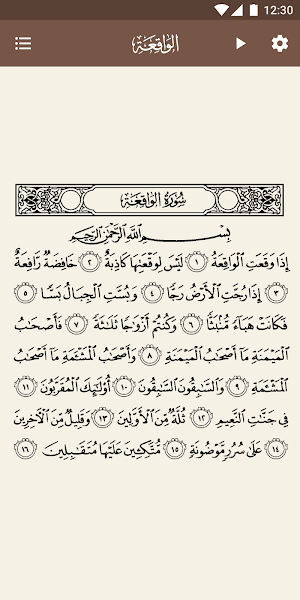 12:30
الواقعة
سُورَةُ الوَاقِعَةِ
بِسْمِ اللَّهِ الرَّحْمَٰنِ الرَّحِيمِ
إِذَا وَقَعَتِ الْوَاقِعَةُ ١ لَيْسَ لِوَقْعَتِهَا كَاذِبَةٌ ٢ خَافِضَةٌ رَّافِعَةٌ
٣ إِذَا رُجَّتِ الْأَرْضُ رَجًّا ٤ وَبُسَّتِ الْجِبَالُ بَسًّا ٥
فَكَانَتْ هَبَاءً مُّنْبَثًّا ٦ وَكُنْتُمْ أَزْوَاجًا ثَلَاثَةً ٧ فَأَصْحَابُ
الْمَيْمَنَةِ مَا أَصْحَابُ الْمَيْمَنَةِ ٨ وَأَصْحَابُ الْمَشْئَمَةِ مَا أَصْحَابُ
الْمَشْئَمَةِ ٩ وَالسَّابِقُونَ السَّابِقُونَ ١٠ أُولَٰئِكَ الْمُقَرَّبُونَ ١١
فِي جَنَّاتِ النَّعِيمِ ١٢ ثُلَّةٌ مِّنَ الْأَوَّلِينَ ١٣ وَقَلِيلٌ مِّنَ الْآخِرِينَ
١٤ عَلَىٰ سُرُرٍ مَّوْضُونَةٍ ١٥ مُّتَّكِئِينَ عَلَيْهَا مُتَقَابِلِينَ ١٦